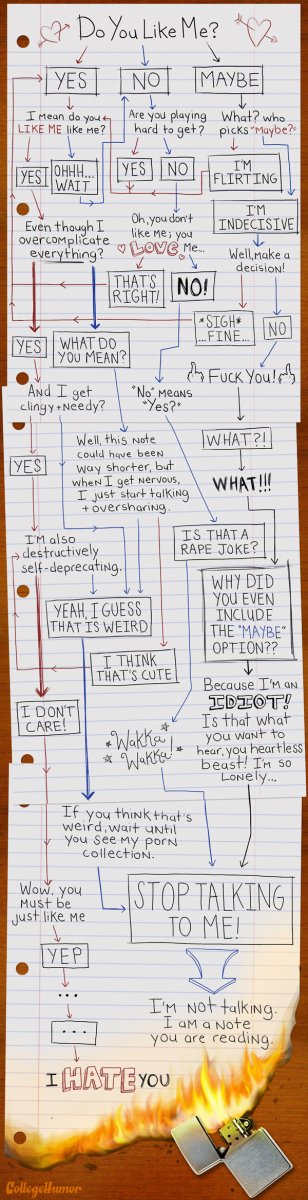 Do You Like Me?
YES
NO
MAYBE
I mean do you
LIKE ME like me?
Are you playing
hard to get?
What? Who
picks "Maybe?"
YES
OHHH...
WAIT
YES
NO
I'M
FLIRTING
I'M
INDECISIVE
Even though I
overcomplicate
everything?
Oh, you don't
like me; you
LOVE Me...
Well, make a
decision!
THAT'S
RIGHT!
NO!
*SIGH*
...FINE...
NO
YES
WHAT DO
YOU MEAN?
FUCK YOU!
And I get
clingy + needy?
"No" means
"Yes?"
WHAT?!
Well, this note
could have been
way shorter, but
when I get nervous,
I just start talking
+ oversharing.
YES
WHAT!!!
I'm also
destructively
self-deprecating.
IS THAT A
RAPE JOKE?
WHY DID
YOU EVEN
INCLUDE
THE "MAYBE"
OPTION??
YEAH, I GUESS
THAT IS WEIRD
I THINK
THAT'S CUTE
I DON'T
CARE!
Because I'm an
IDIOT!
Is that what
you want to
hear, you heartless
beast! I'm so
Lonely...
*Wakka!
Wakka!*
If you think that's
weird, wait until
you see my porn
collection.
Wow, you
must be
just like me
STOP TALKING
TO ME!
YEP
...
...
I'm not talking.
I am a note
you are reading.
I HATE YOU
CollegeHumor